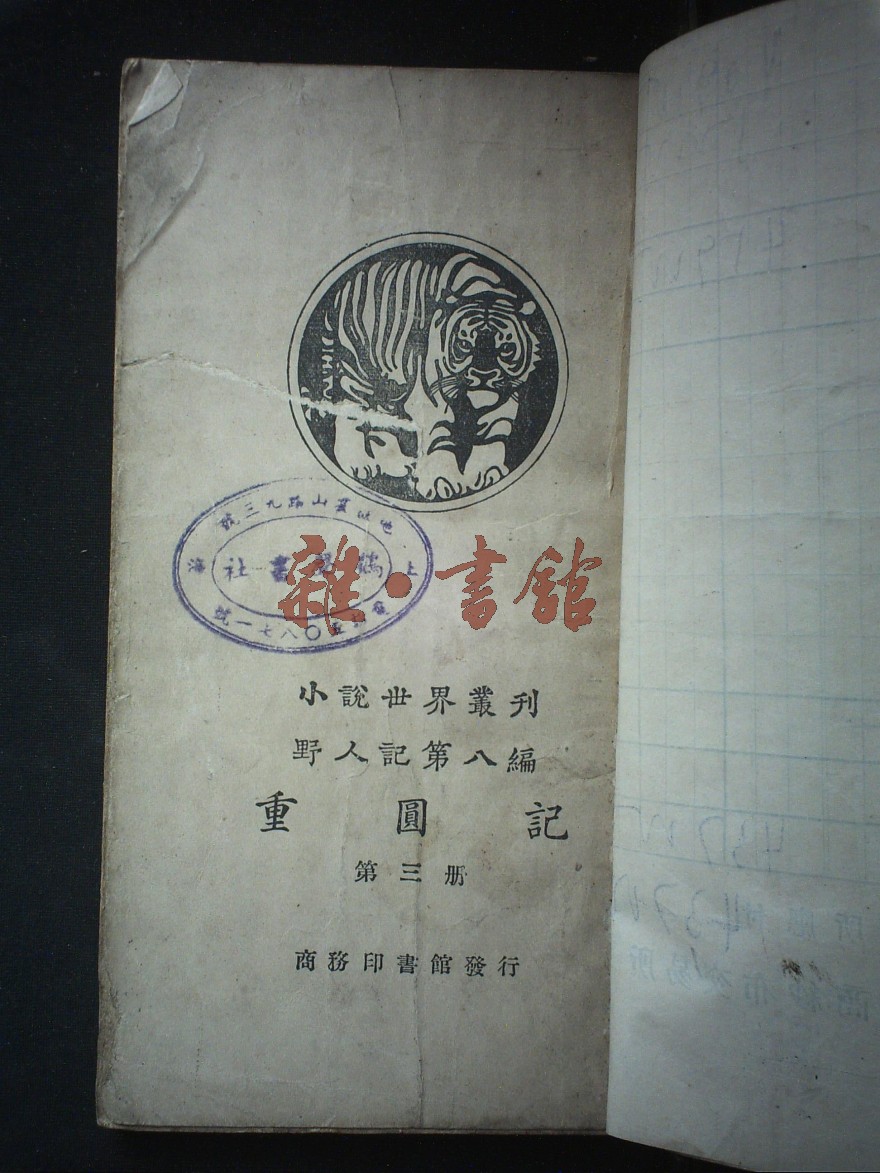 雜·書館
小說世界叢刊
野人記第八編
重圓記
第三册
商務印書館發行
上海
山路九三號
書社
五〇八七一號